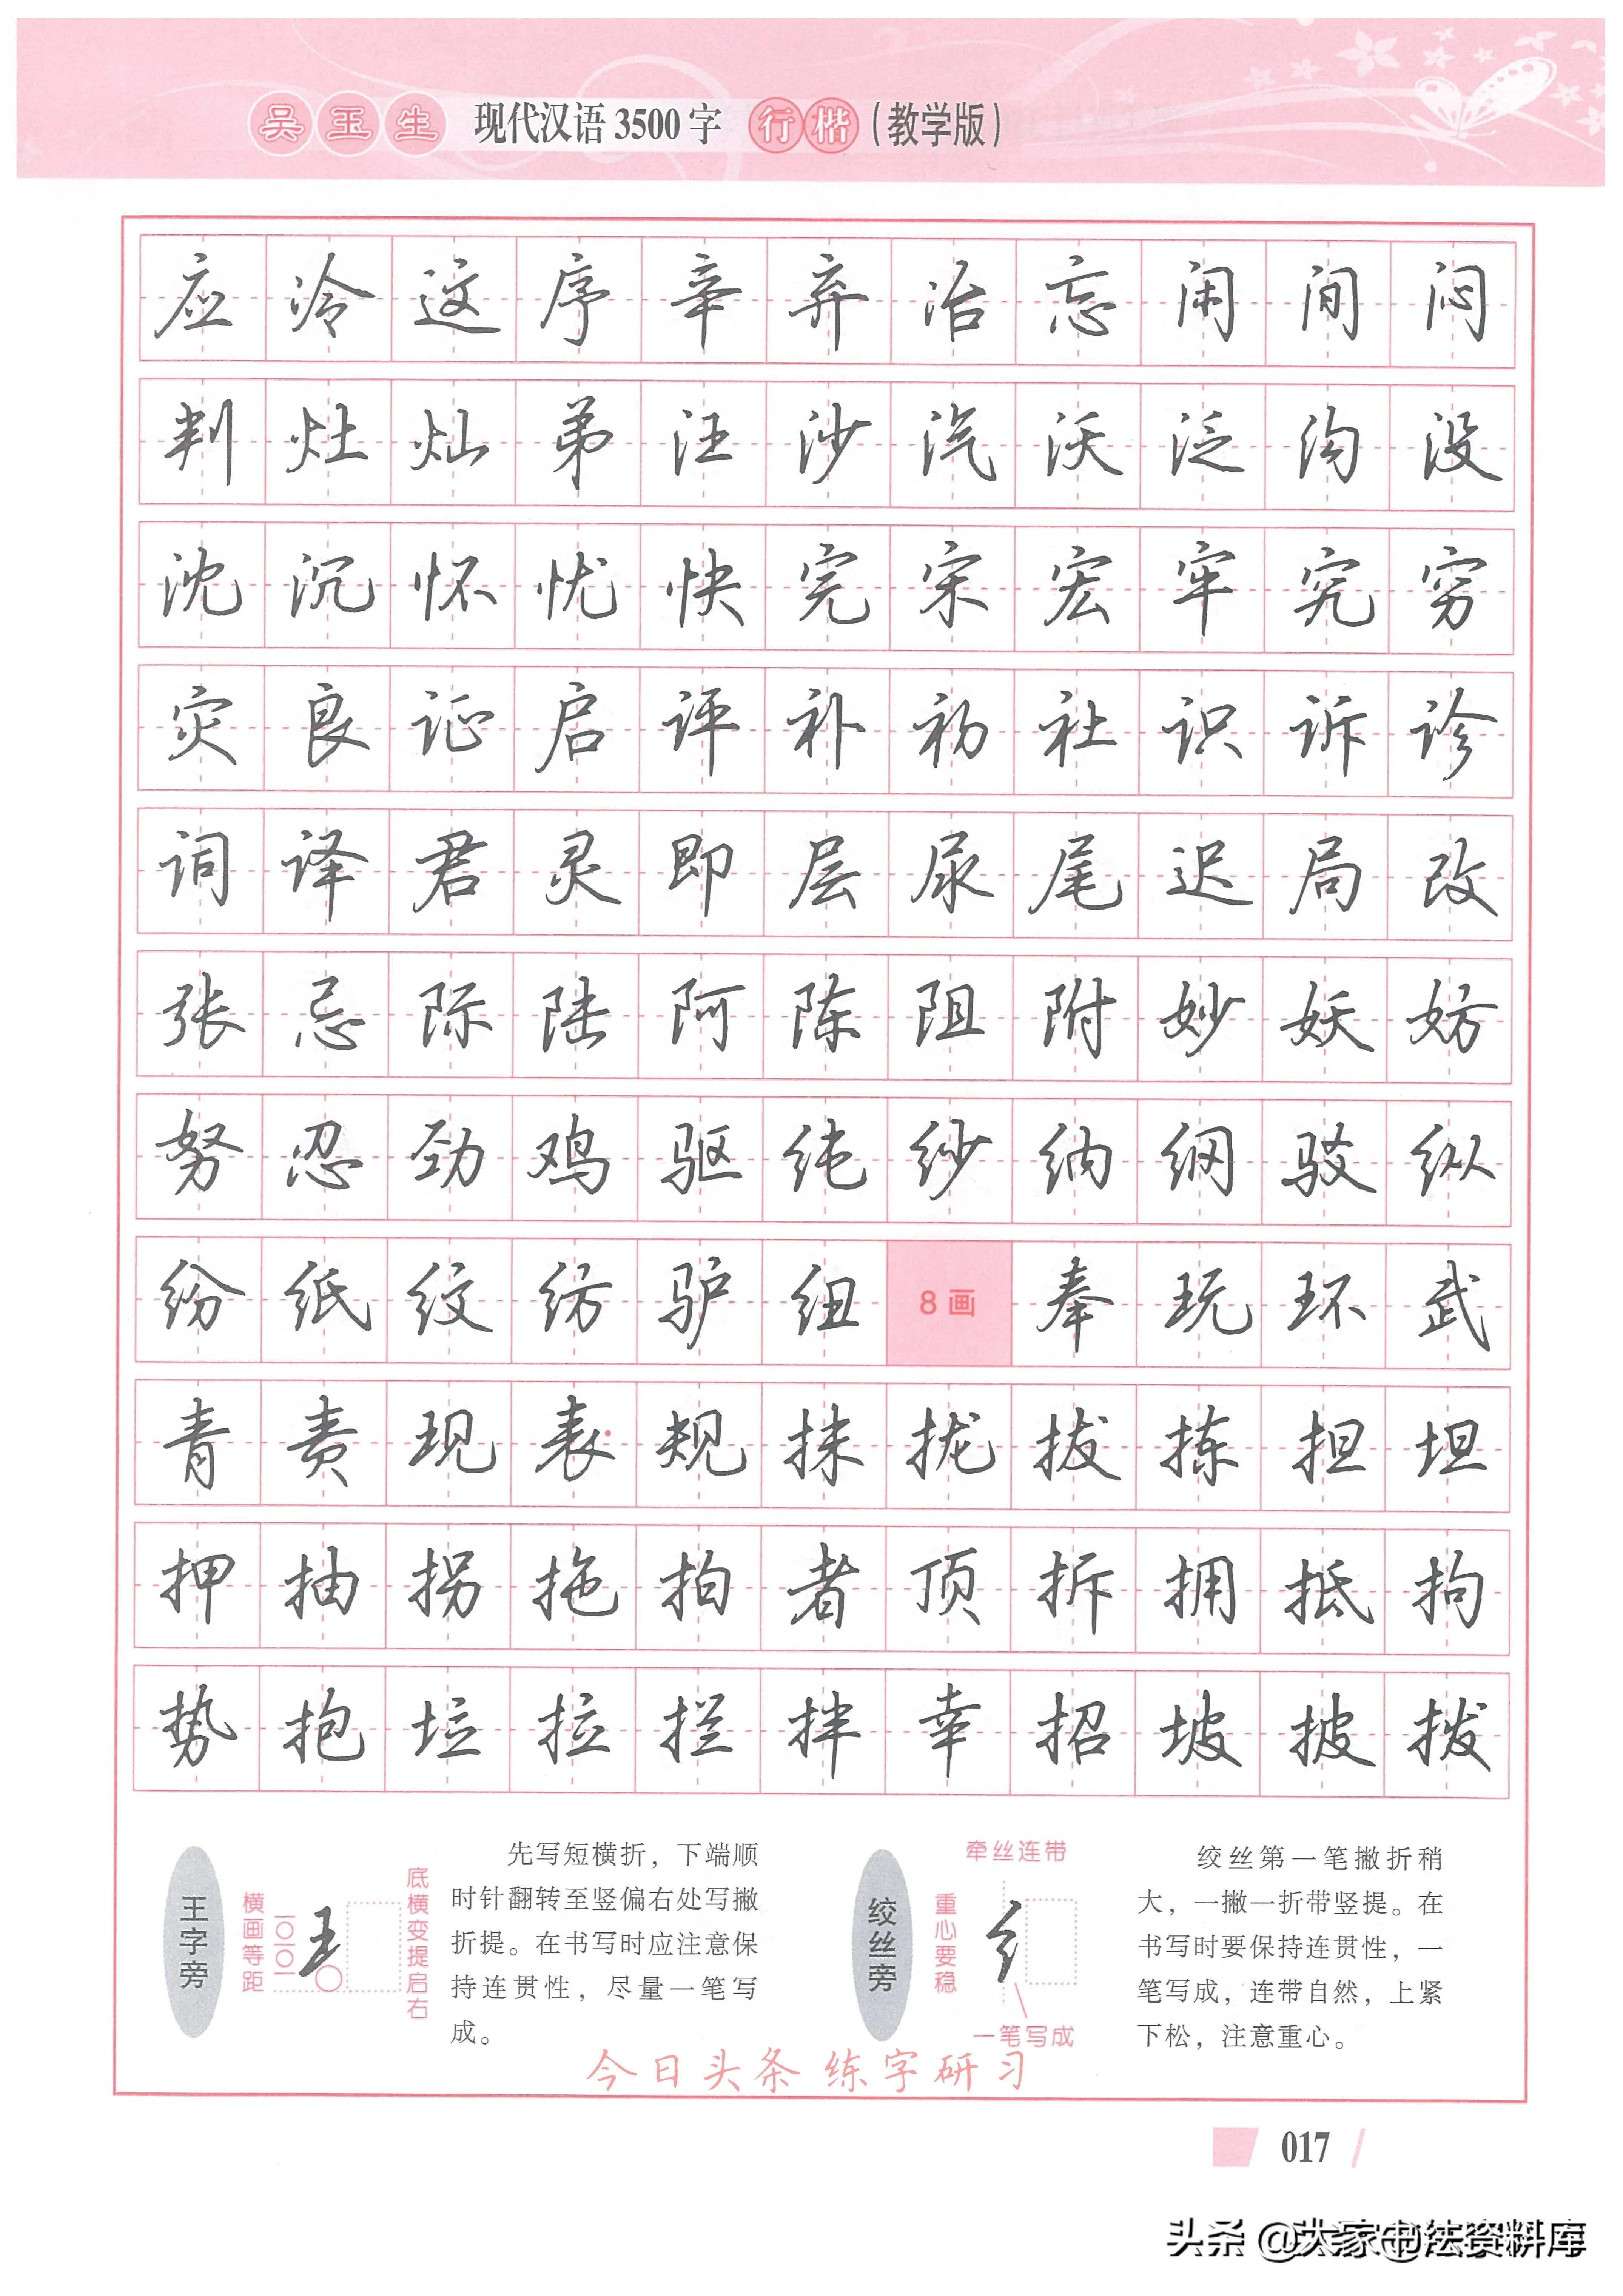 吴玉生 现代汉语3500字 行楷（教学版）
应冷这序辛弃冶忘闲间闷
判灶灿弟汪沙汽沃泛沟没
沈沉怀忧快完宋宏牢究穷
灾良证启评补初社识诉诊
词译君灵即层尿尾迟局改
张忌际陆阿陈阻附妙妖妨
努忍劲鸡驱纯纱纳纲驳纵
纷纸纹纺驴纽 8画 奉玩环武
青责现表规抹拢拔拣担坦
押抽拐拖拍者顶拆拥抵拘
势抱垃拉拦拌幸招坡披拨
王字旁
横画等距
底横变提启右
先写短横折，下端顺
时针翻转至竖偏右处写撇
折提。在书写时应注意保
持连贯性，尽量一笔写
成。
绞丝旁
牵丝连带
重心要稳
一笔写成
绞丝第一笔撇折稍
大，一撇一折带竖提。在
书写时要保持连贯性，一
笔写成，连带自然，上紧
下松，注意重心。
今日头条 练字研习
017
头条 @大家书法资料库